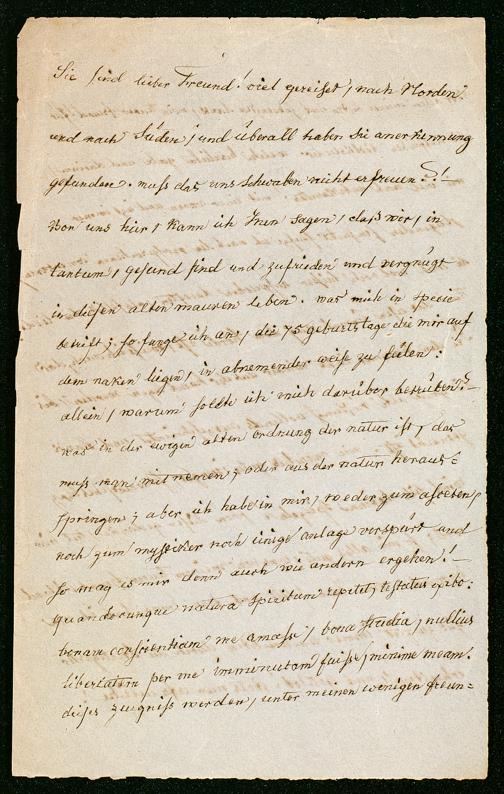 Sie sind lieber Freund! viel gereiset, nach Norden.
und nach Süden, und überall haben Sie anerkennung
gefunden. muß das uns Schwaben nicht erfreuen?!
Von uns hier, kann ich Inen sagen, daß wir, in
tantum, gesund sind und zufrieden und vergnügt
in diesen alten mauren leben. was mich in specie
betrift; so fange ich an, die 75 geburtstage die mir auf
dem naken liegen, in abnemender weise zu fülen:
allein, warum sollte ich mich darüber betrüben?
was in der ewigen alten ordnung der natur ist, das
muß man mitnemen; oder aus der natur heraus=
springen; aber ich habe in mir, weder zum asceten,
noch zum mystiker noch einige anlage verspürt und
so mag es mir denn auch wie andern ergehen!
quandocunque natura spiritum repetet, testatus exibo:
bonam conscientiam me amasse, bona studia, nullius
libertatem per me imminutam fuisse, minime meam.
dieses zeugniß werden, unter meinen wenigen freun=